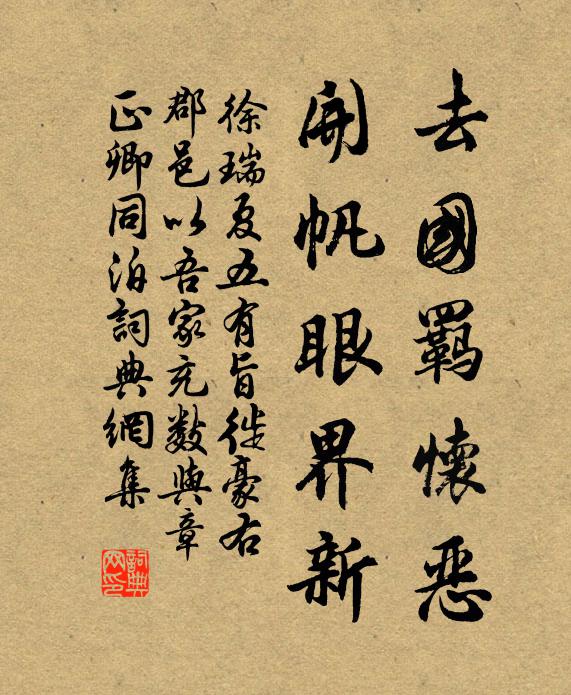 去國羈懷惡
開帆眼界新
徐瑞夏五有旨徙豪右
郡邑以吾家充數與章
正卿同泊詞典網集
詞典網印